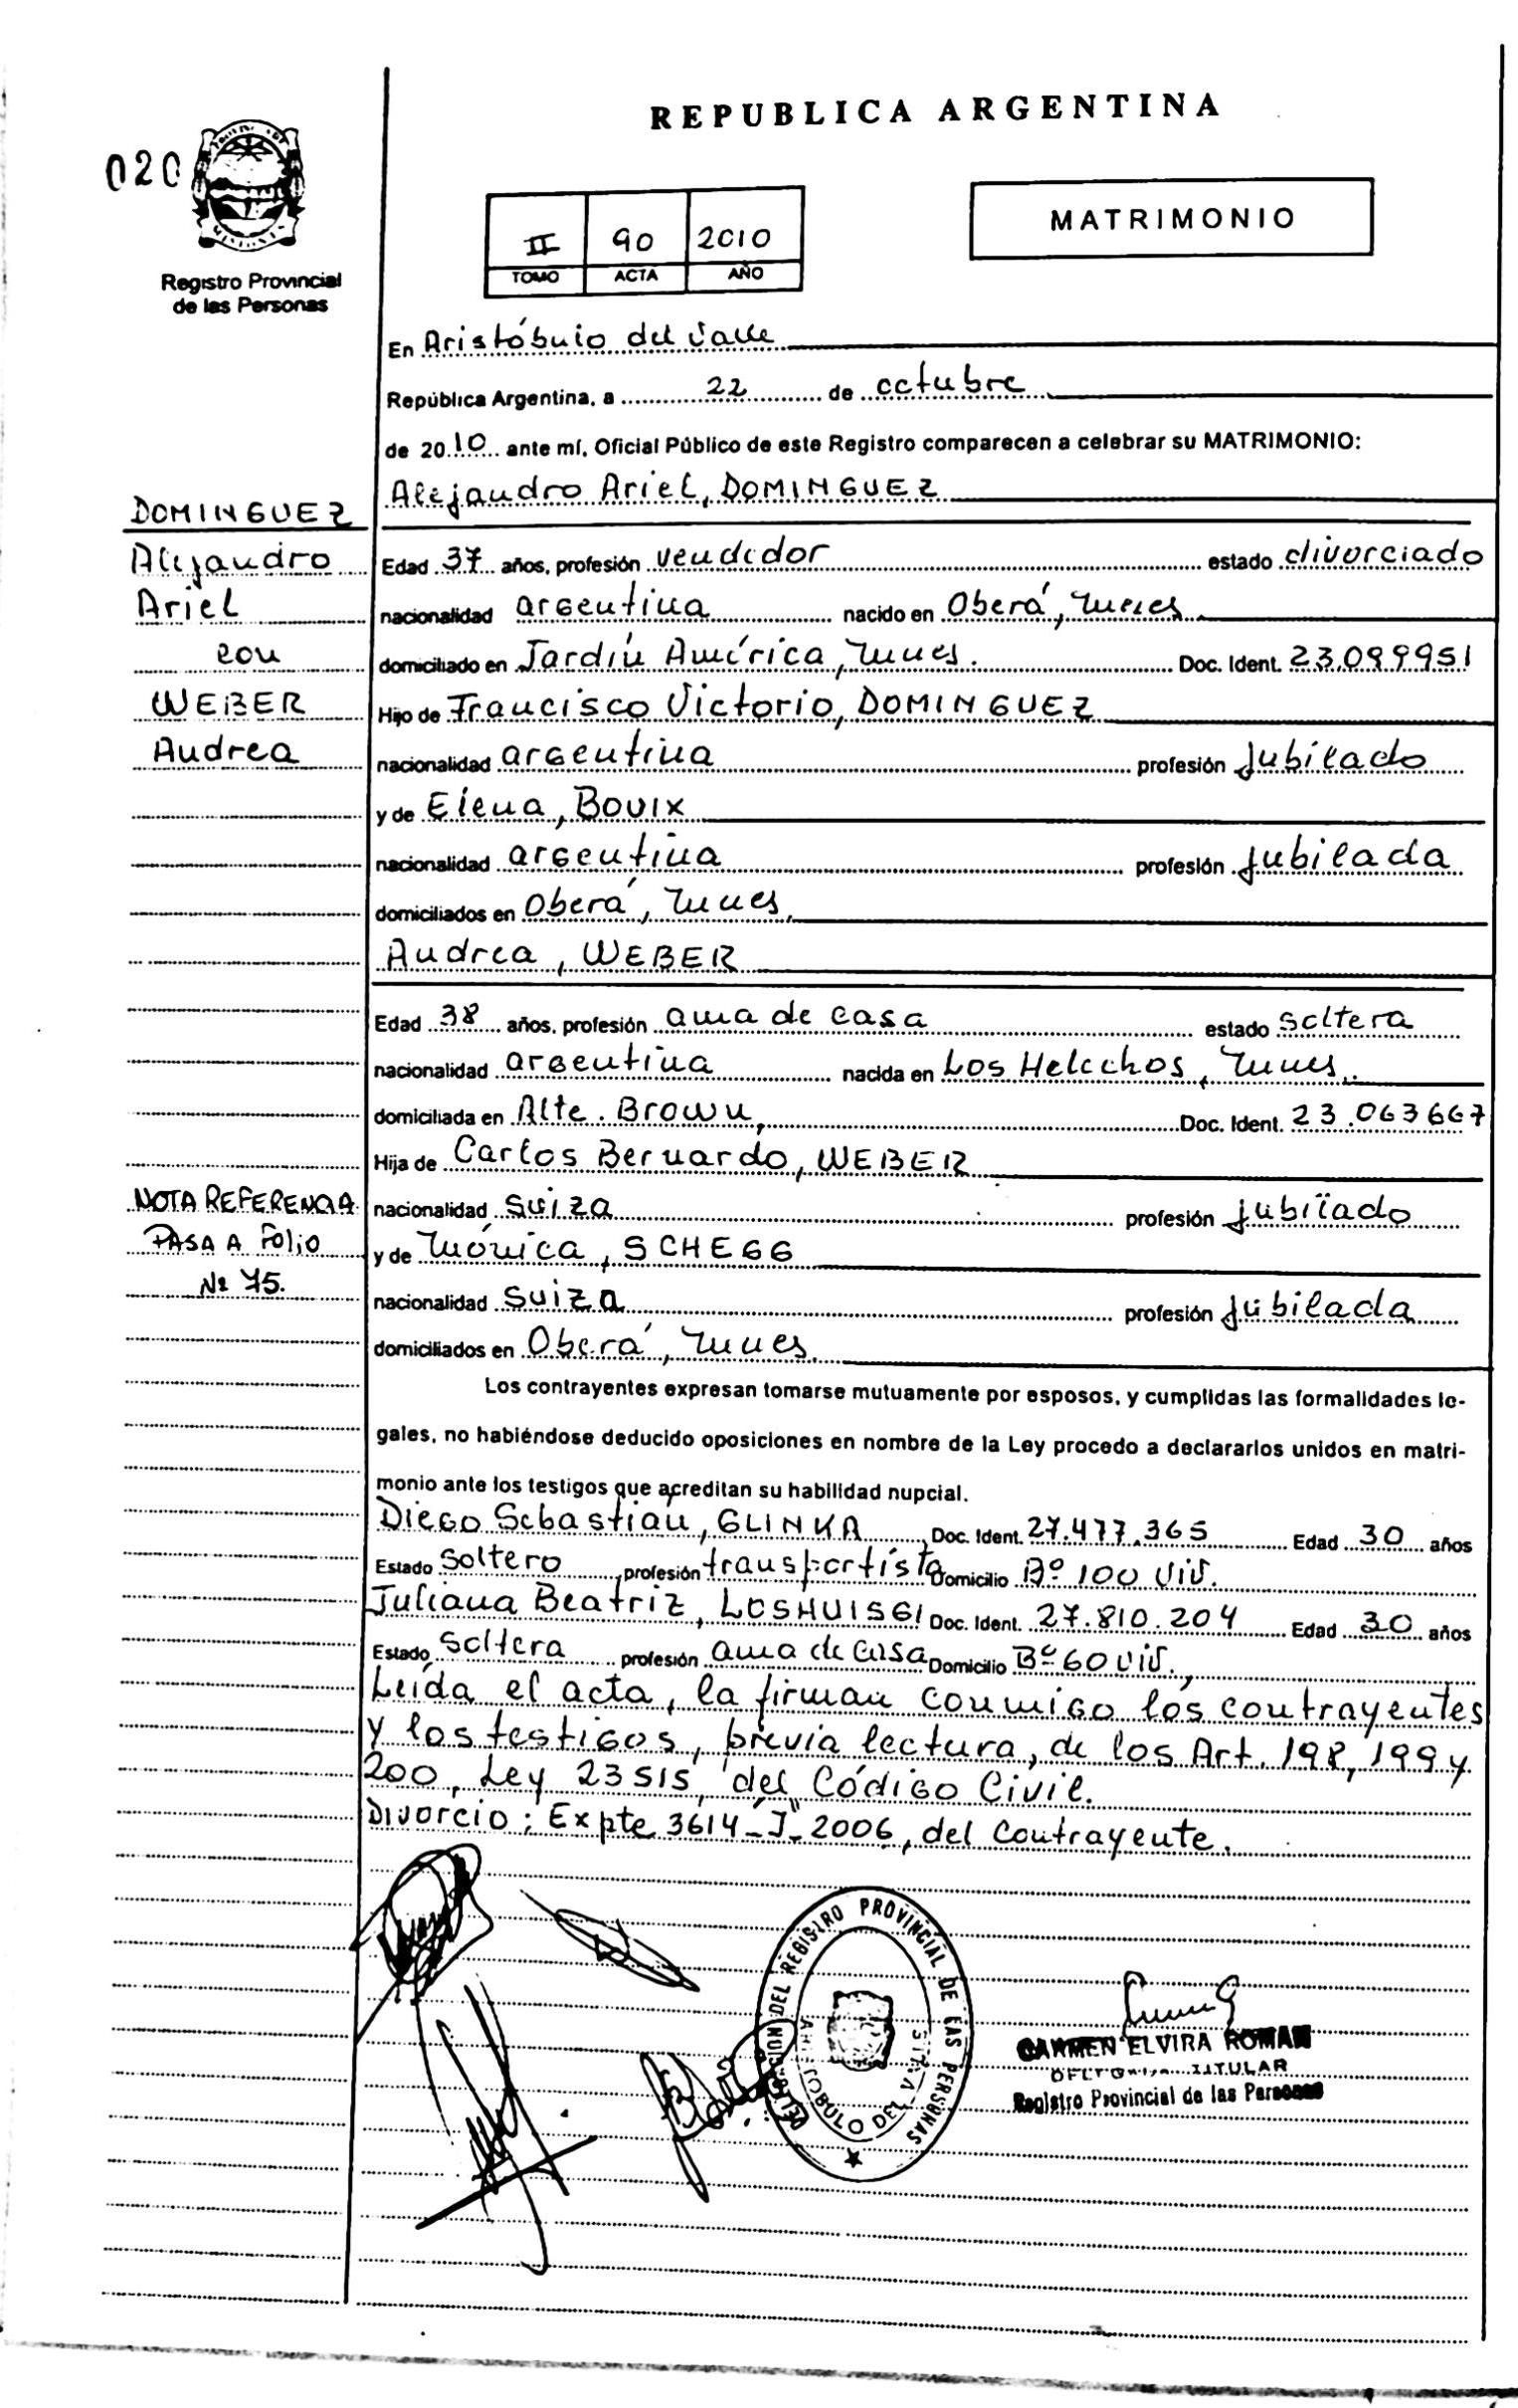 REPUBLICA ARGENTINA
020
MATRIMONIO
II 90 2010
TOMO ACTA AÑO
Registro Provincial
de las Personas
En Aristóbulo del Valle
República Argentina, a 22 de octubre
de 2010 ante mí, Oficial Público de este Registro comparecen a celebrar su MATRIMONIO:
Alejandro Ariel, DOMINGUEZ
DOMINGUEZ
Alejandro
Ariel
con
WEBER
Andrea
Edad 37 años, profesión vendedor estado divorciado
nacionalidad argentina nacido en Oberá, Mnes.
domiciliado en Jardín América, Mnes. Doc. Ident. 23.099951
Hijo de Francisco Victorio, DOMINGUEZ
nacionalidad argentina profesión jubilado
y de Elena, BOVIX
nacionalidad argentina profesión jubilada
domiciliados en Oberá, Mnes.
Andrea, WEBER
Edad 38 años, profesión ama de casa estado soltera
nacionalidad argentina nacida en Los Helechos, Mnes.
domiciliada en Alte. Brown, Doc. Ident. 23.063667
Hija de Carlos Bernardo, WEBER
nacionalidad suiza profesión jubilado
y de Mónica, SCHEGG
nacionalidad suiza profesión jubilada
domiciliados en Oberá, Mnes.
NOTA REFERENCIA
PASA A Folio
Nº 75.
Los contrayentes expresan tomarse mutuamente por esposos, y cumplidas las formalidades le-
gales, no habiéndose deducido oposiciones en nombre de la Ley procedo a declararlos unidos en matri-
monio ante los testigos que acreditan su habilidad nupcial.
Diego Sebastián, GLINKA Doc. Ident. 27.477.365 Edad 30 años
Estado soltero profesión transportista Domicilio Bº 100 Viv.
Juliana Beatriz, Doc. Ident. 27.810.204 Edad 30 años
Estado soltera profesión ama de casa Domicilio Bº 60 Viv.,
Leída el acta, la firman conmigo los contrayentes
y los testigos, previa lectura, de los Art. 198, 199 y
200, Ley 23515, del Código Civil.
Divorcio: Expte 3614-"J"-2006, del contrayente.
DELEGACION DEL REGISTRO PROVINCIAL DE LAS PERSONAS
ARISTOBULO DEL VALLE
CARMEN ELVIRA ROMAN
TITULAR
Registro Provincial de las Personas